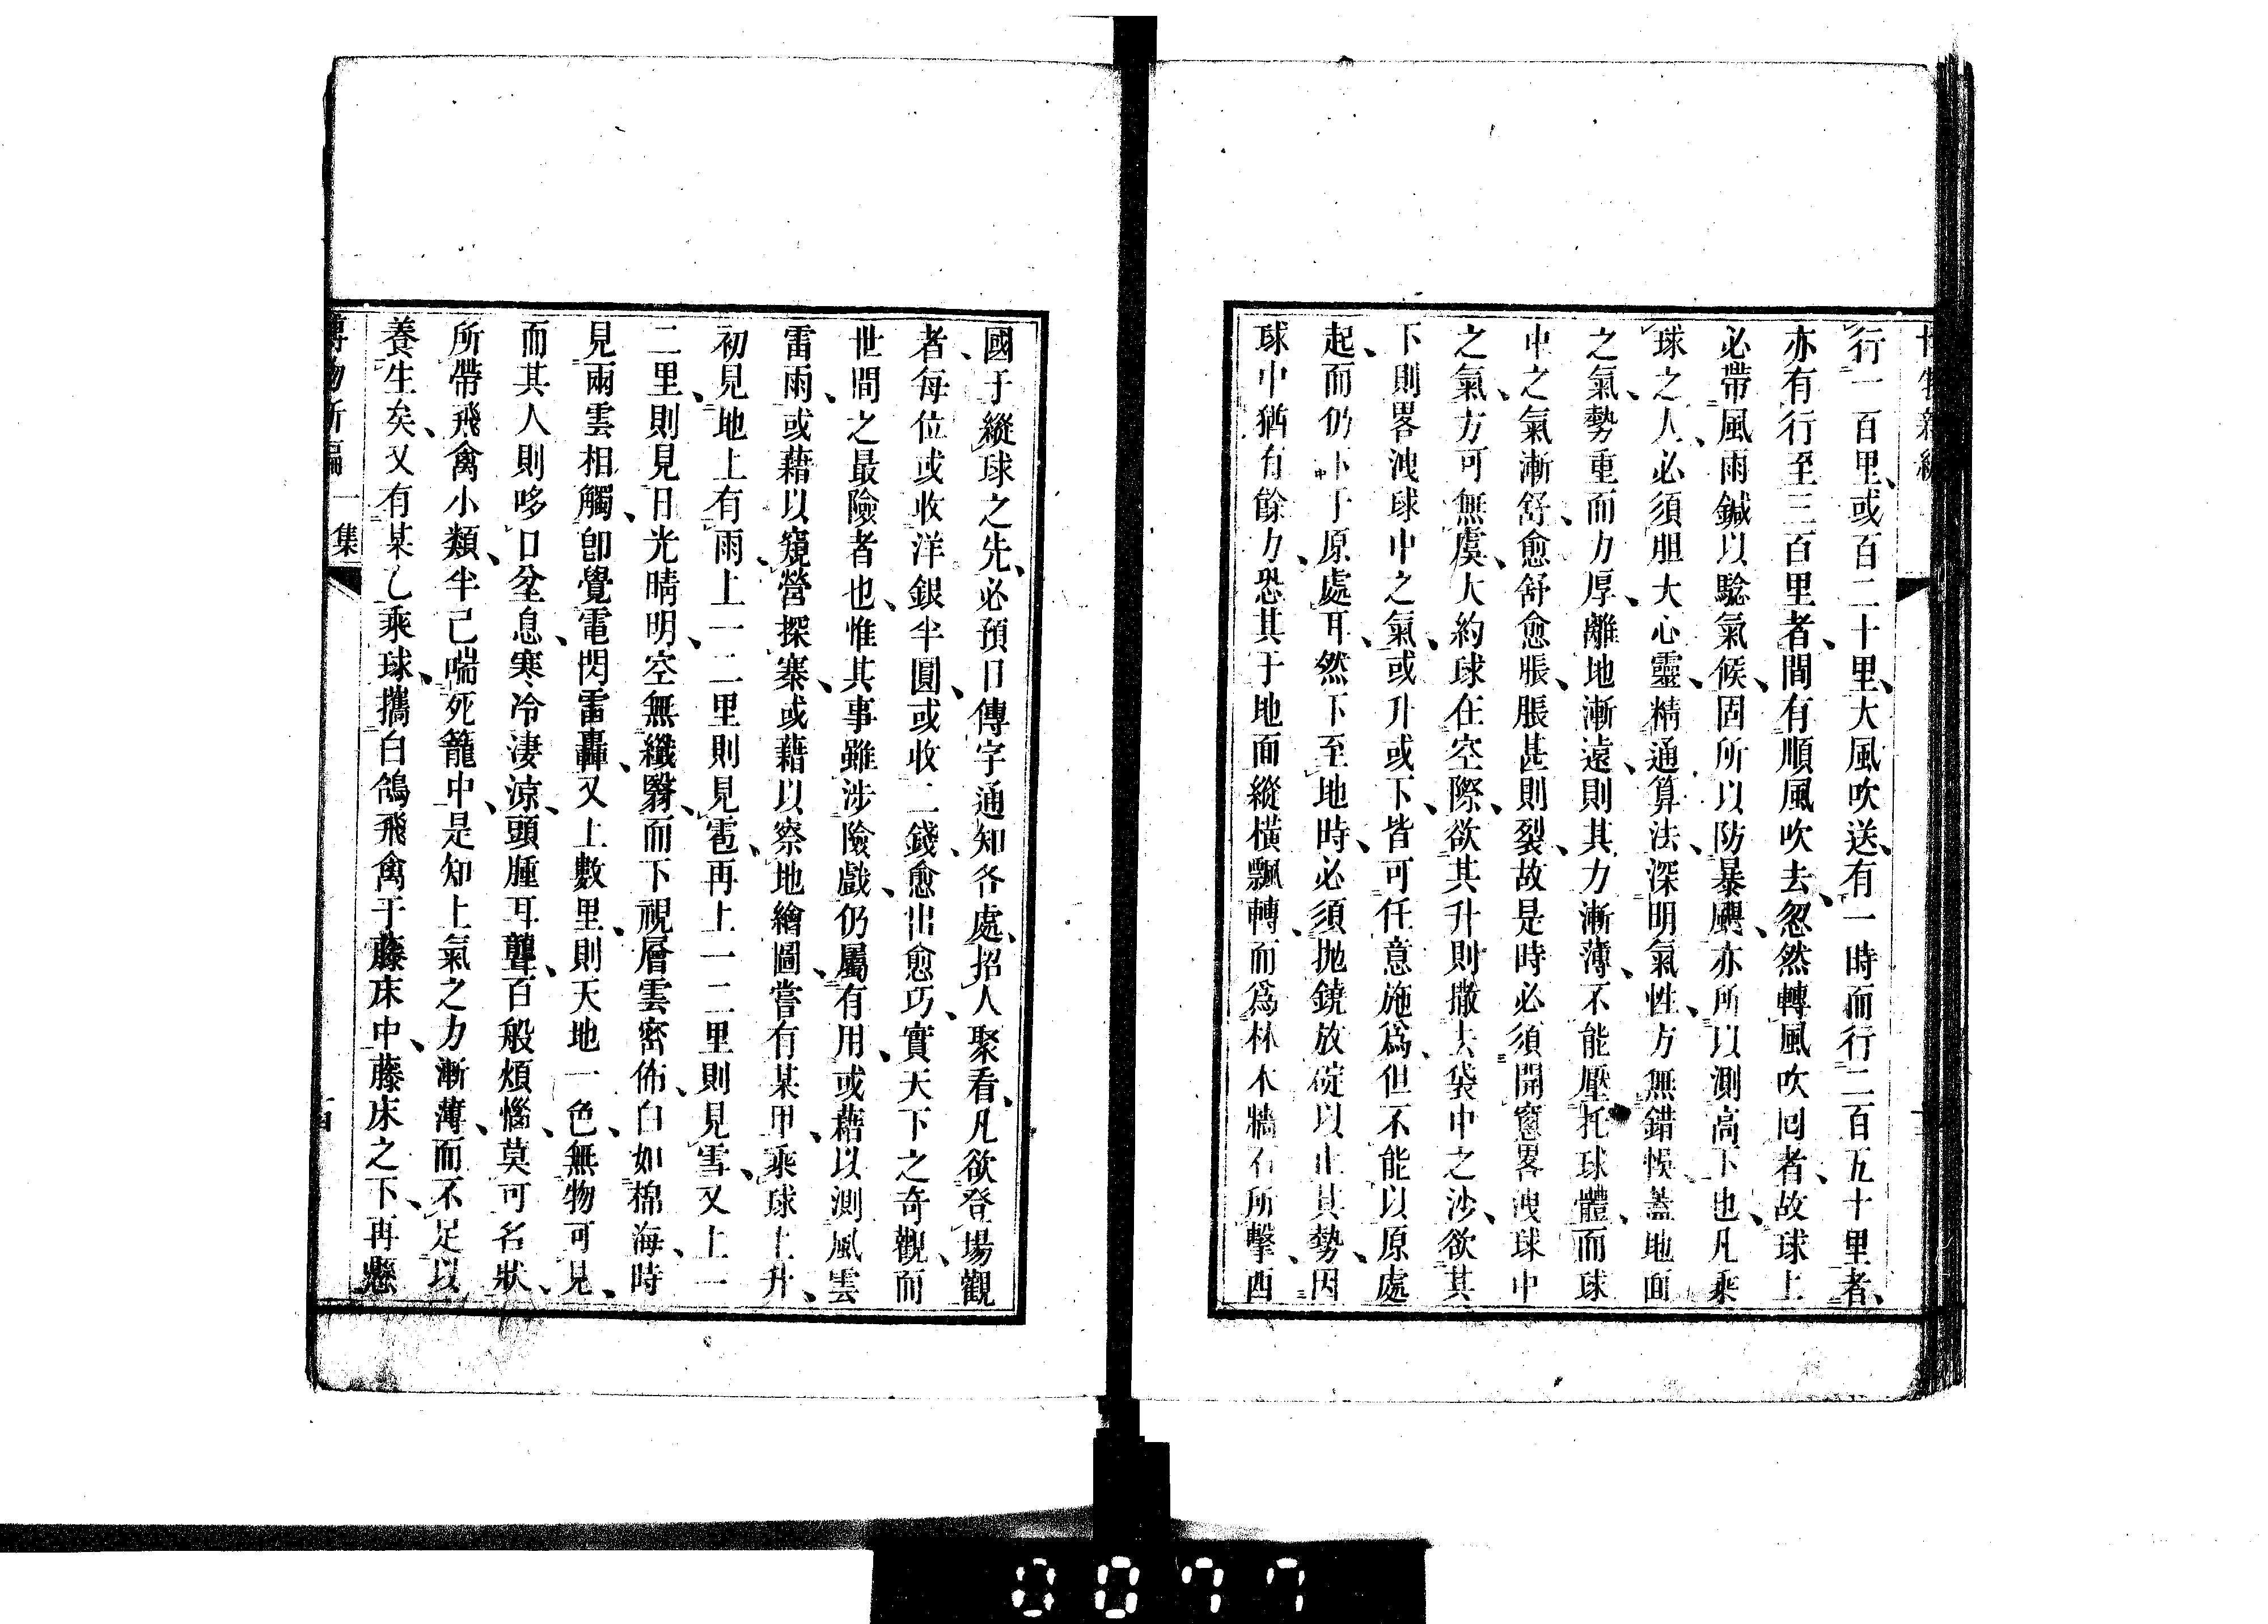 行一百里、或百二十里、大風吹送、有一時而行二百五十里者、
亦有行至三百里者、間有順風吹去、忽然轉風吹囘者、故球上
必帶風雨鍼以騐氣候、固所以防暴颶、亦所以測高下也、凡乘
球之人、必須胆大心靈、精通算法、深明氣性、方無錯悞、蓋地面
之氣、勢重而力厚、離地漸遠、則其力漸薄、不能壓托球體、而球
中之氣漸舒、愈舒愈脹、脹甚則裂、故是時必須開窻畧洩球中
之氣、方可無虞、大約球在空際、欲其升則撒去袋中之沙、欲其
下則畧洩球中之氣、或升或下、皆可任意施爲、但不能以原處
起、而仍下于原處耳、然下至地時、必須拋鐃放碇以止其勢、因
球中猶有餘力、恐其于地面縱橫飄轉、而爲林木牆石所擊、西
國于縱球之先、必預日傳字通知各處、招人聚看、凡欲登塲觀
者、每位或收洋銀半圓、或收二錢、愈出愈巧、實天下之奇觀、而
世間之最險者也、惟其事雖涉險戲、仍屬有用、或藉以測風雲
雷雨、或藉以窺營探寨、或藉以察地繪圖、嘗有某甲、乘球上升、
初見地上有雨、上一二里則見雹、再上一二里則見雪、又上一
二里、則見日光晴明、空無纖翳、而下視層雲密佈、白如棉海、時
見兩雲相觸、卽覺電閃雷轟、又上數里、則天地一色、無物可見、
而其人則哆口坌息、寒冷淒涼、頭腫耳聾、百般煩惱、莫可名狀、
所帶飛禽小類、半已喘死籠中、是知上氣之力漸薄、而不足以
養生矣、又有某乙乘球、攜白鴿飛禽于藤床中、藤床之下、再懸
博物新編 一集